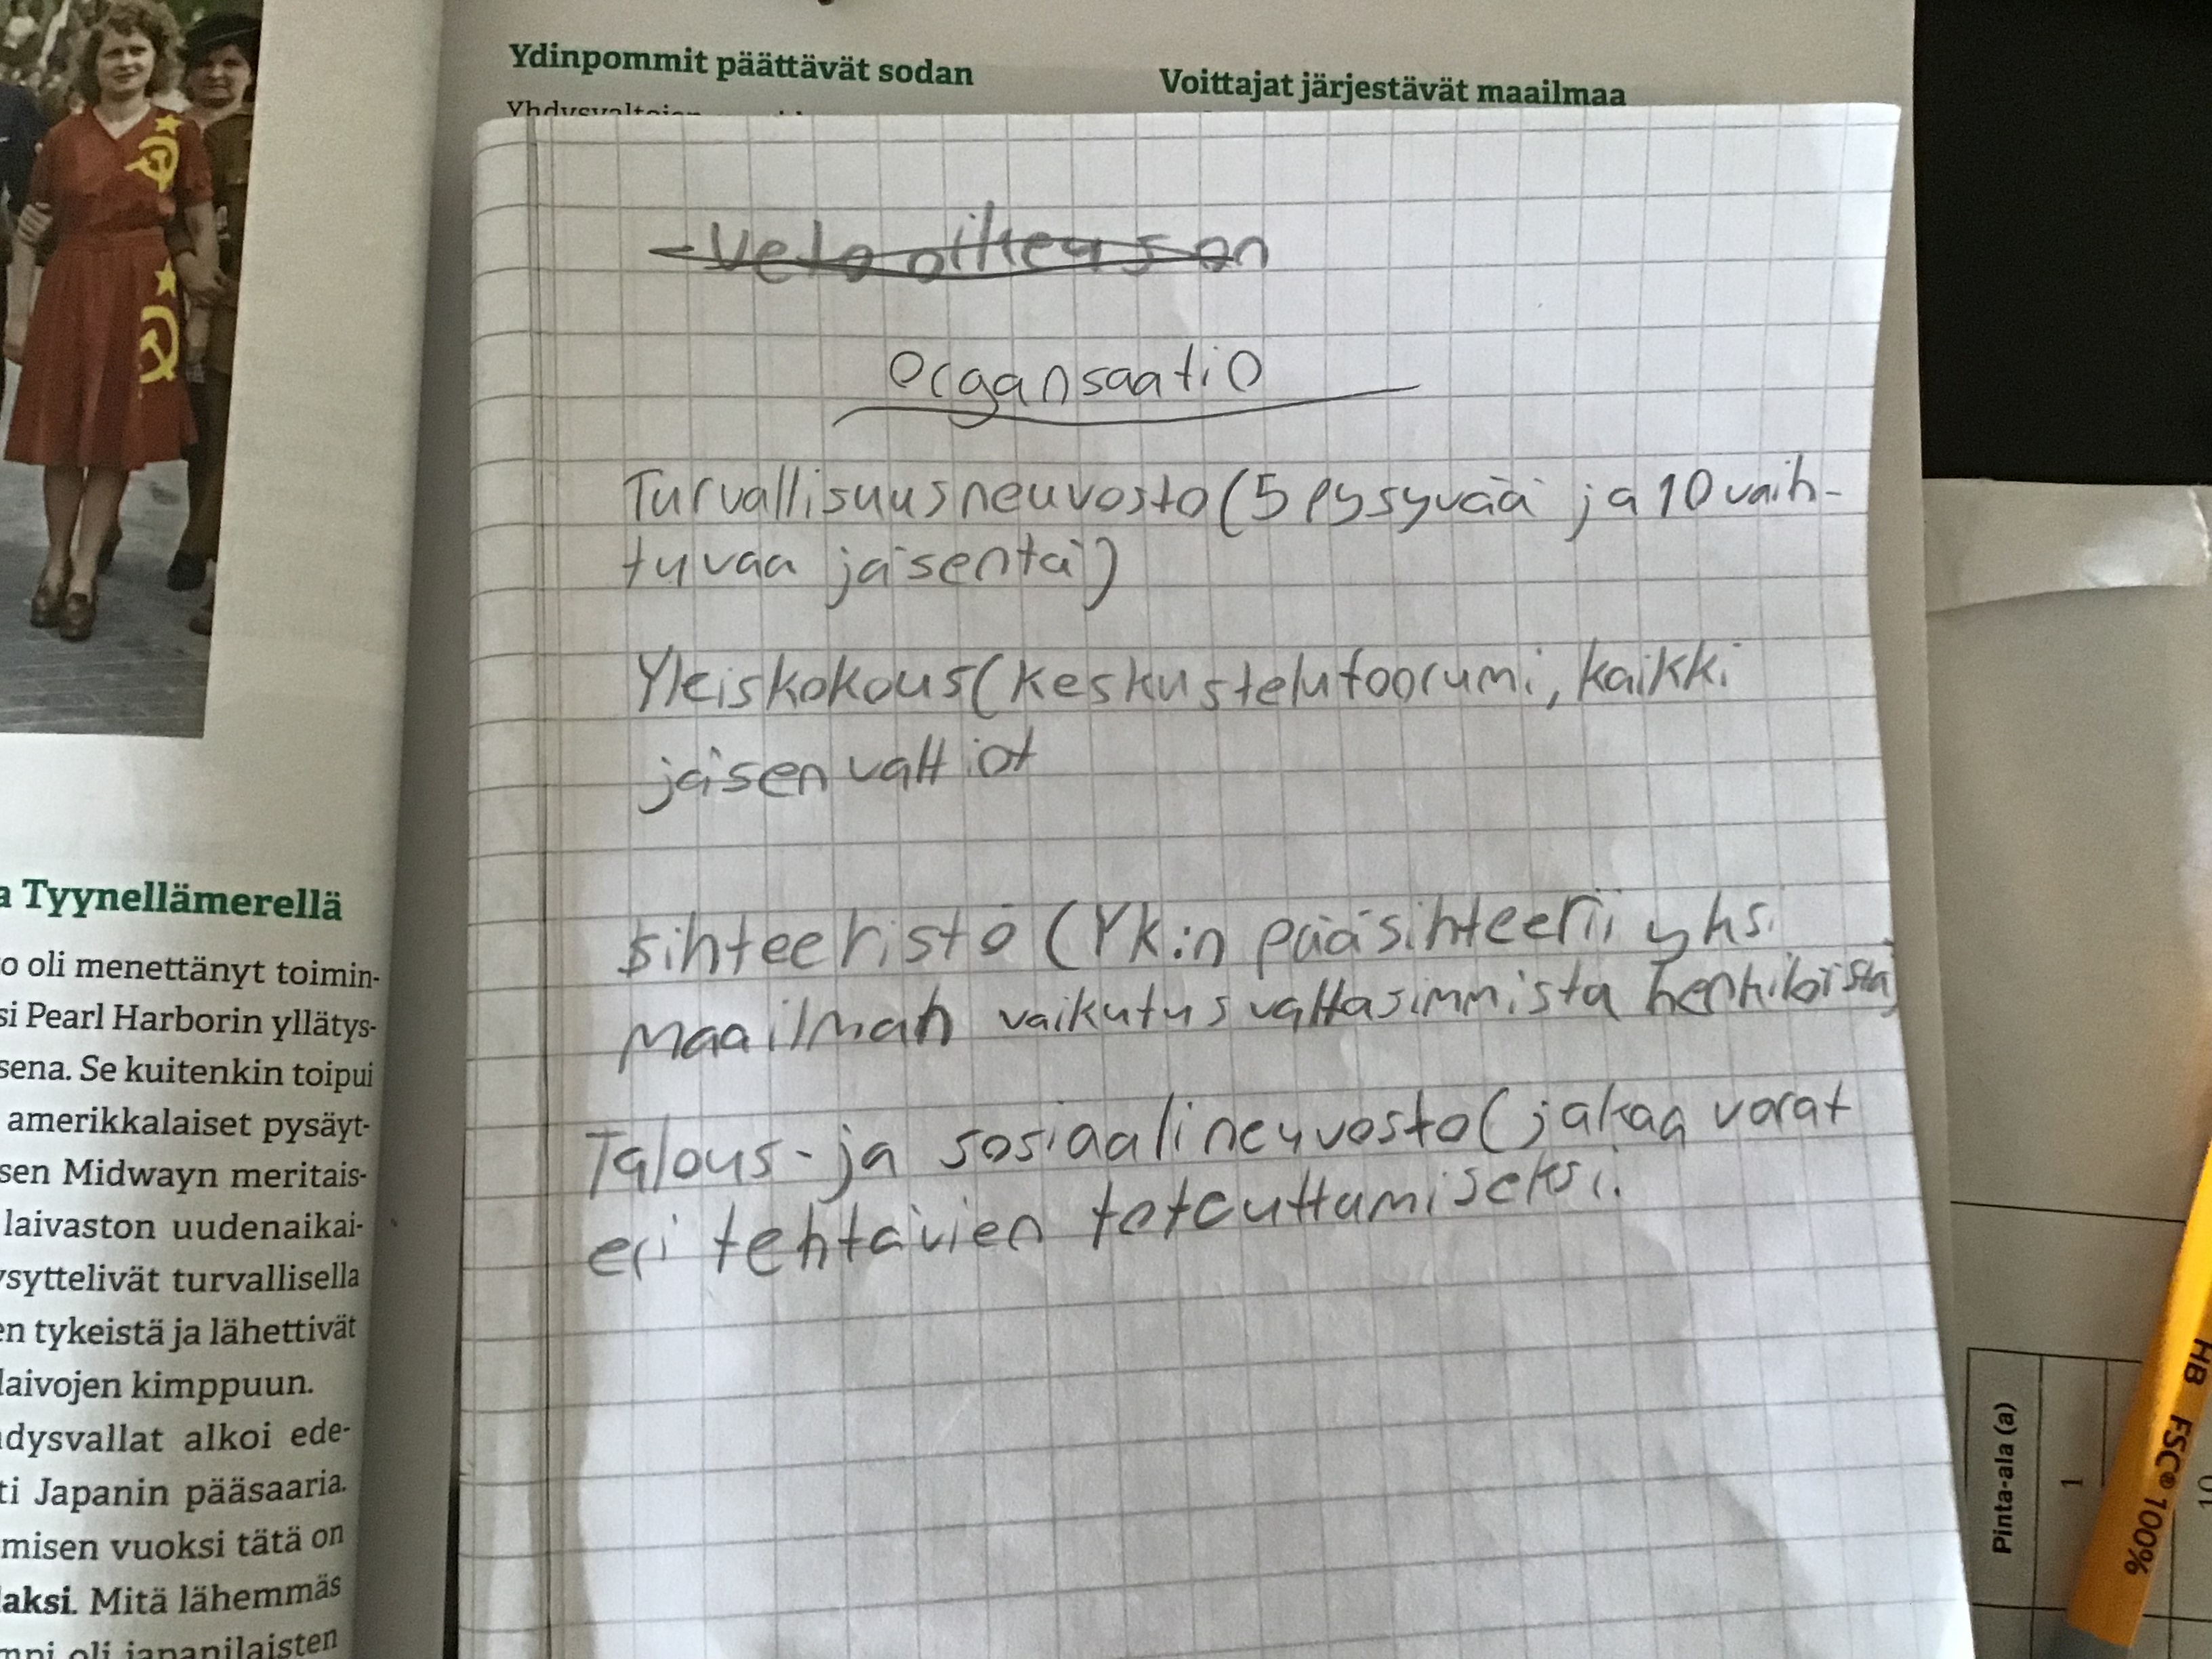 Ydinpommit päättävät sodan
Voittajat järjestävät maailmaa
Yhdysvaltojen
- Veto oikeus on
organsaatio
Turvallisuusneuvosto (5 pysyvää ja 10 vaih-
tuvaa jäsentä)
Yleiskokous (keskustelufoorumi, kaikki
jäsenvaltiot
sihteeristö (YK:n pääsihteerii yksi
maailman vaikutusvaltasimmista henkilöistä)
Talous- ja sosiaalineuvosto (jakaa varat
eri tehtävien toteuttamiseksi.
a Tyynellämerellä
o oli menettänyt toimin-
si Pearl Harborin yllätys-
sena. Se kuitenkin toipui
amerikkalaiset pysäyt-
sen Midwayn meritais-
laivaston uudenaikai-
ysyttelivät turvallisella
en tykeistä ja lähettivät
laivojen kimppuun.
dysvallat alkoi ede-
ti Japanin pääsaaria.
misen vuoksi tätä on
laksi. Mitä lähemmäs
mpi oli japanilaisten
Pinta-ala (a)
1
10
HB FSC® 100%